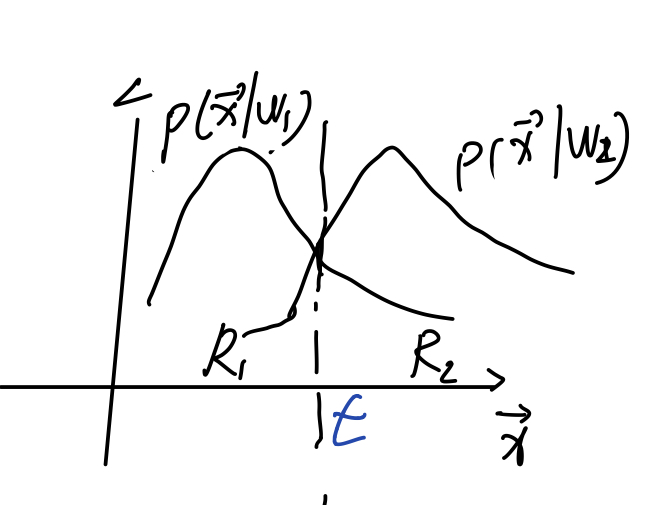 p(x⃗|w₁)
p(x⃗|w₂)
R₁
R₂
t
x⃗